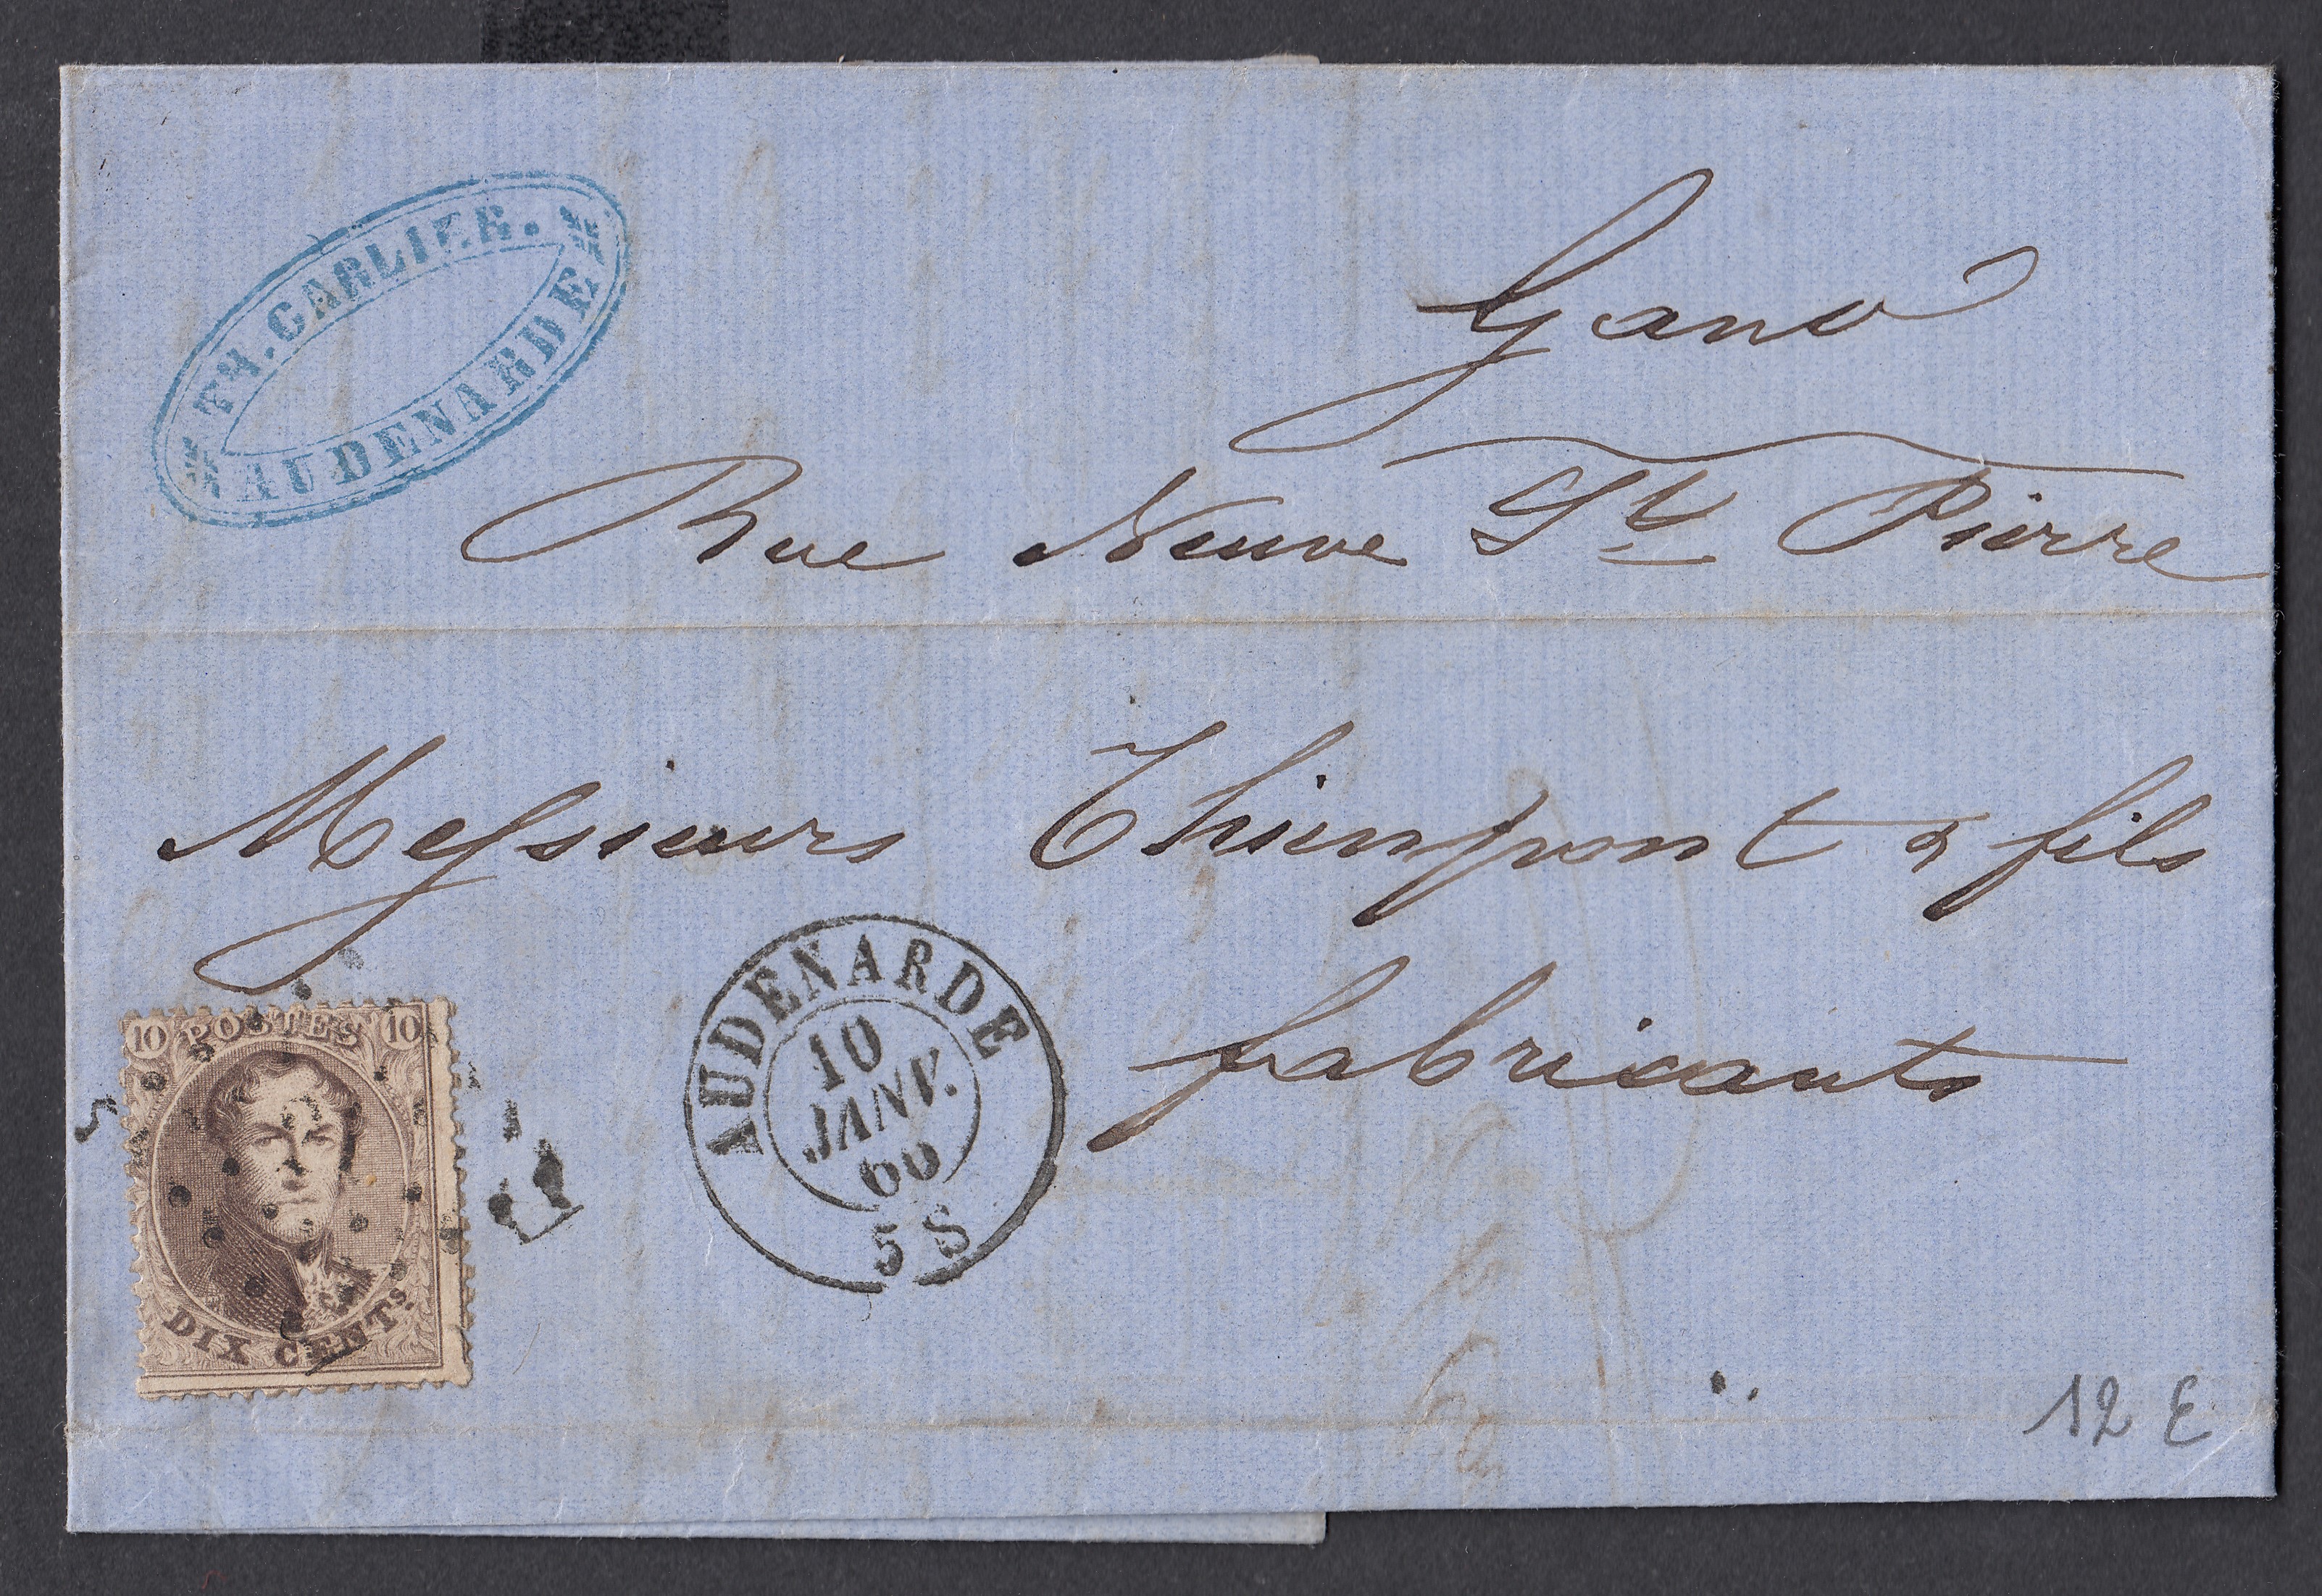 TH. CARLIER.
AUDENARDE
Gand
Rue Neuve St Pierre
Messieurs Thienpont & fils
fabricants
10 POSTES 10
DIX CENTS.
AUDENARDE
10
JANV.
66
5 S
12 E